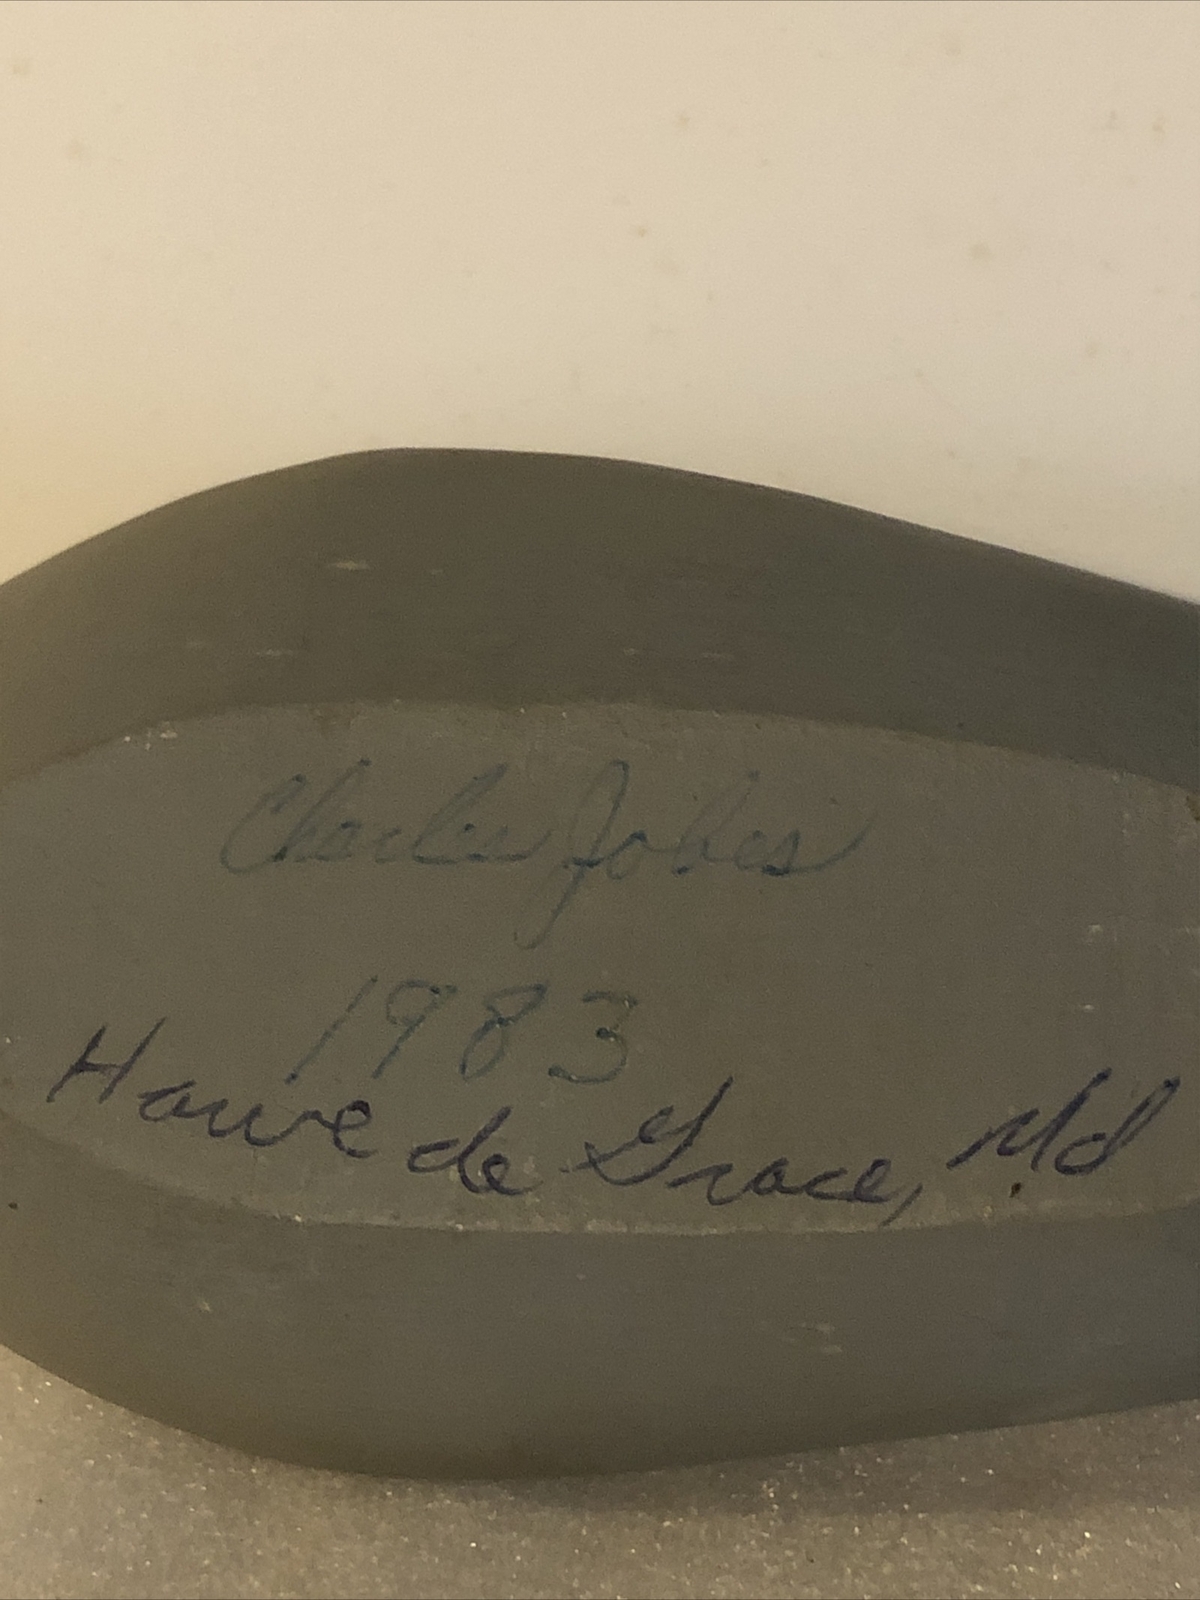 Charles Jobes
1983
Havre de Grace, Md